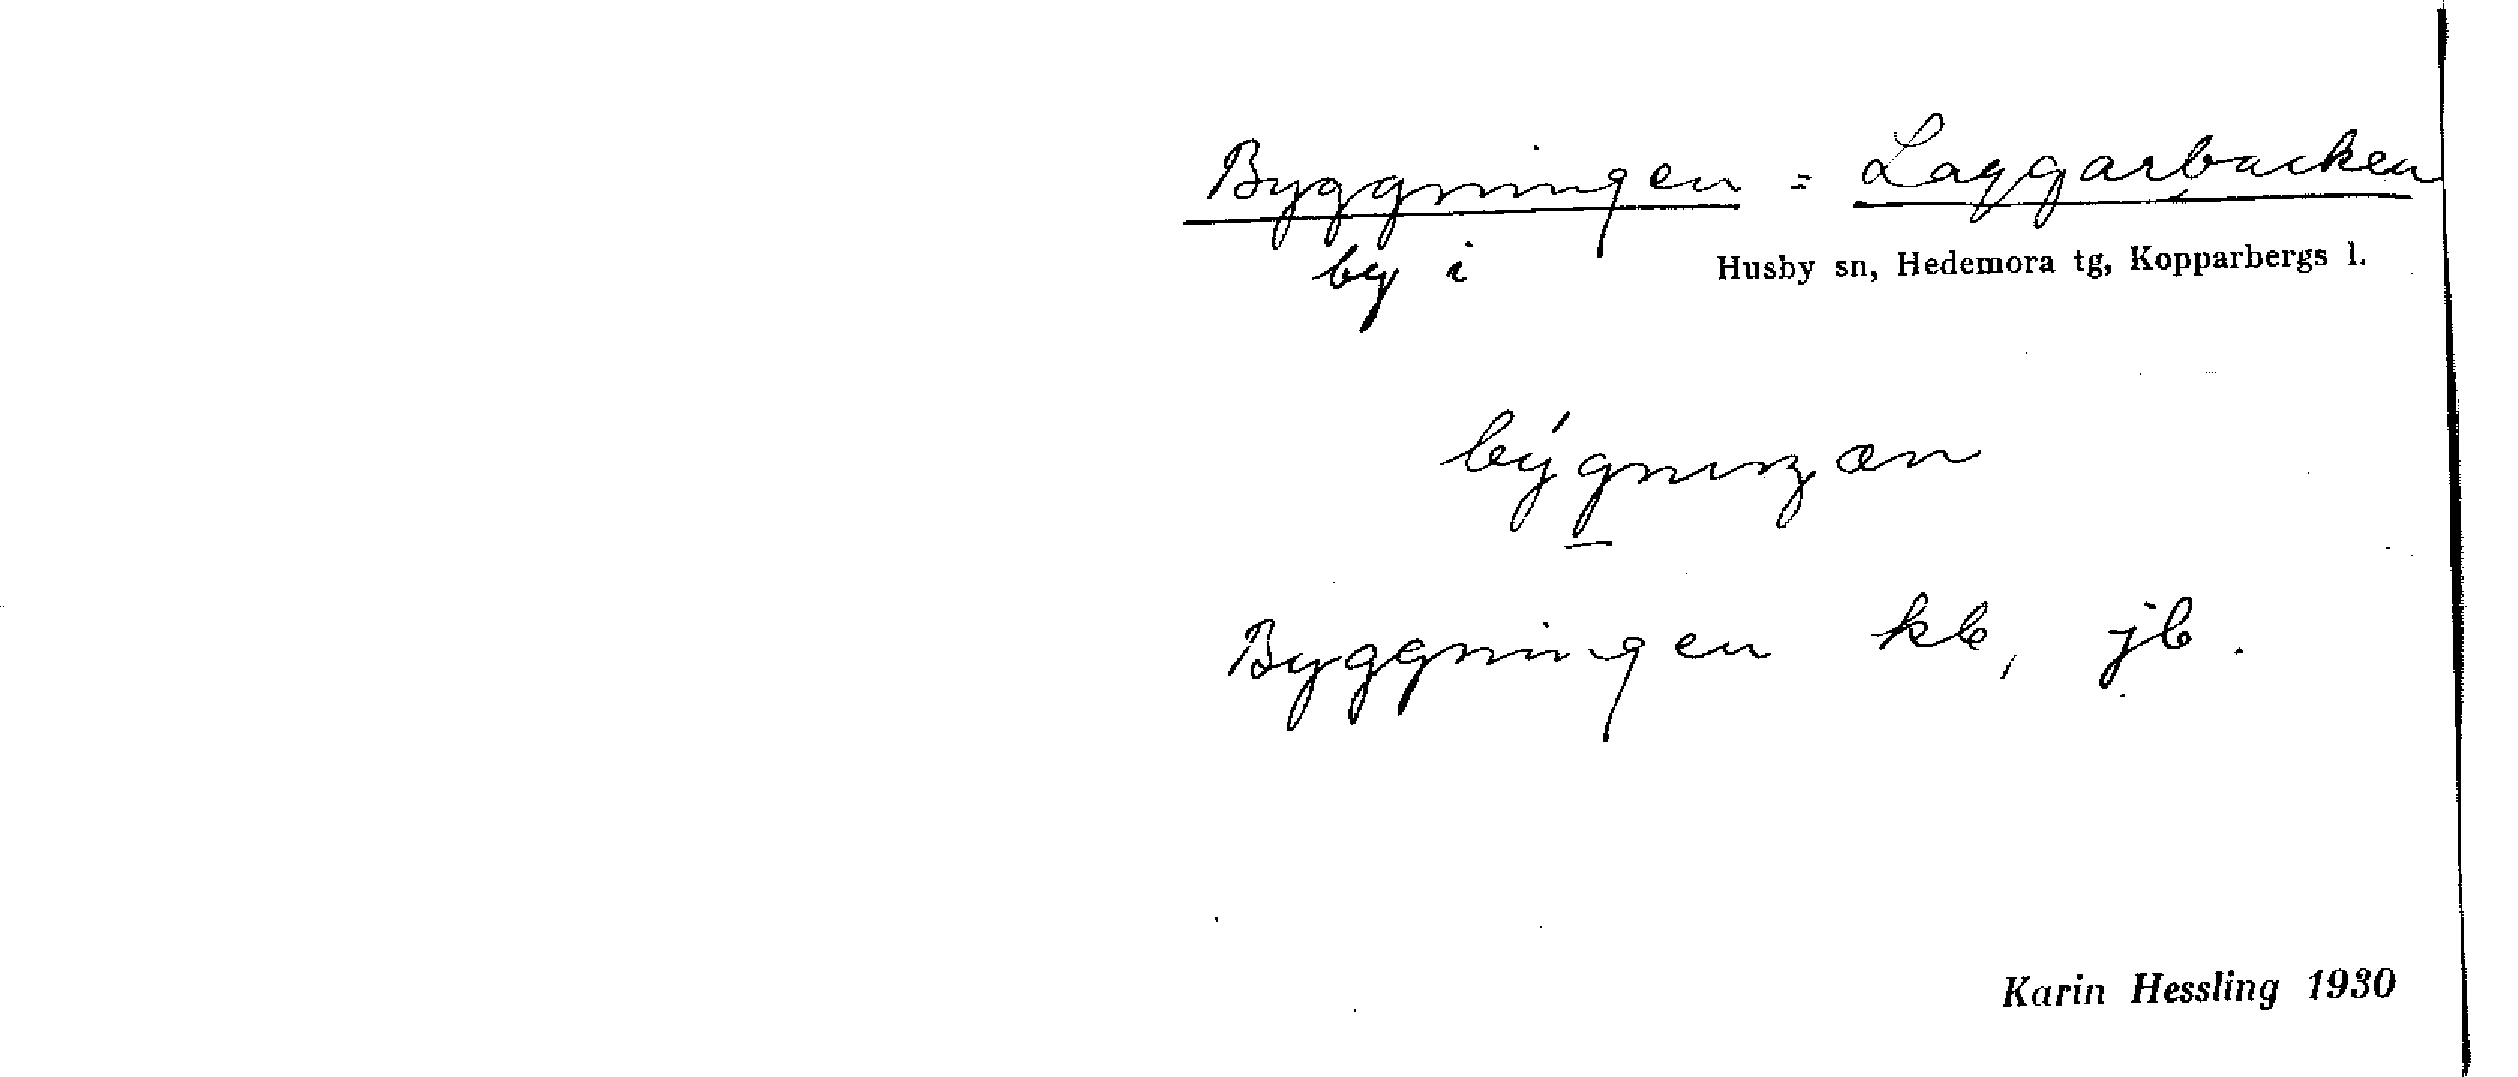 Byggningen = Laggarbacken
by i Husby sn, Hedemora tg, Kopparbergs l.
býgnıŋan
Byggningen kb, jb.
Karin Hessling 1930